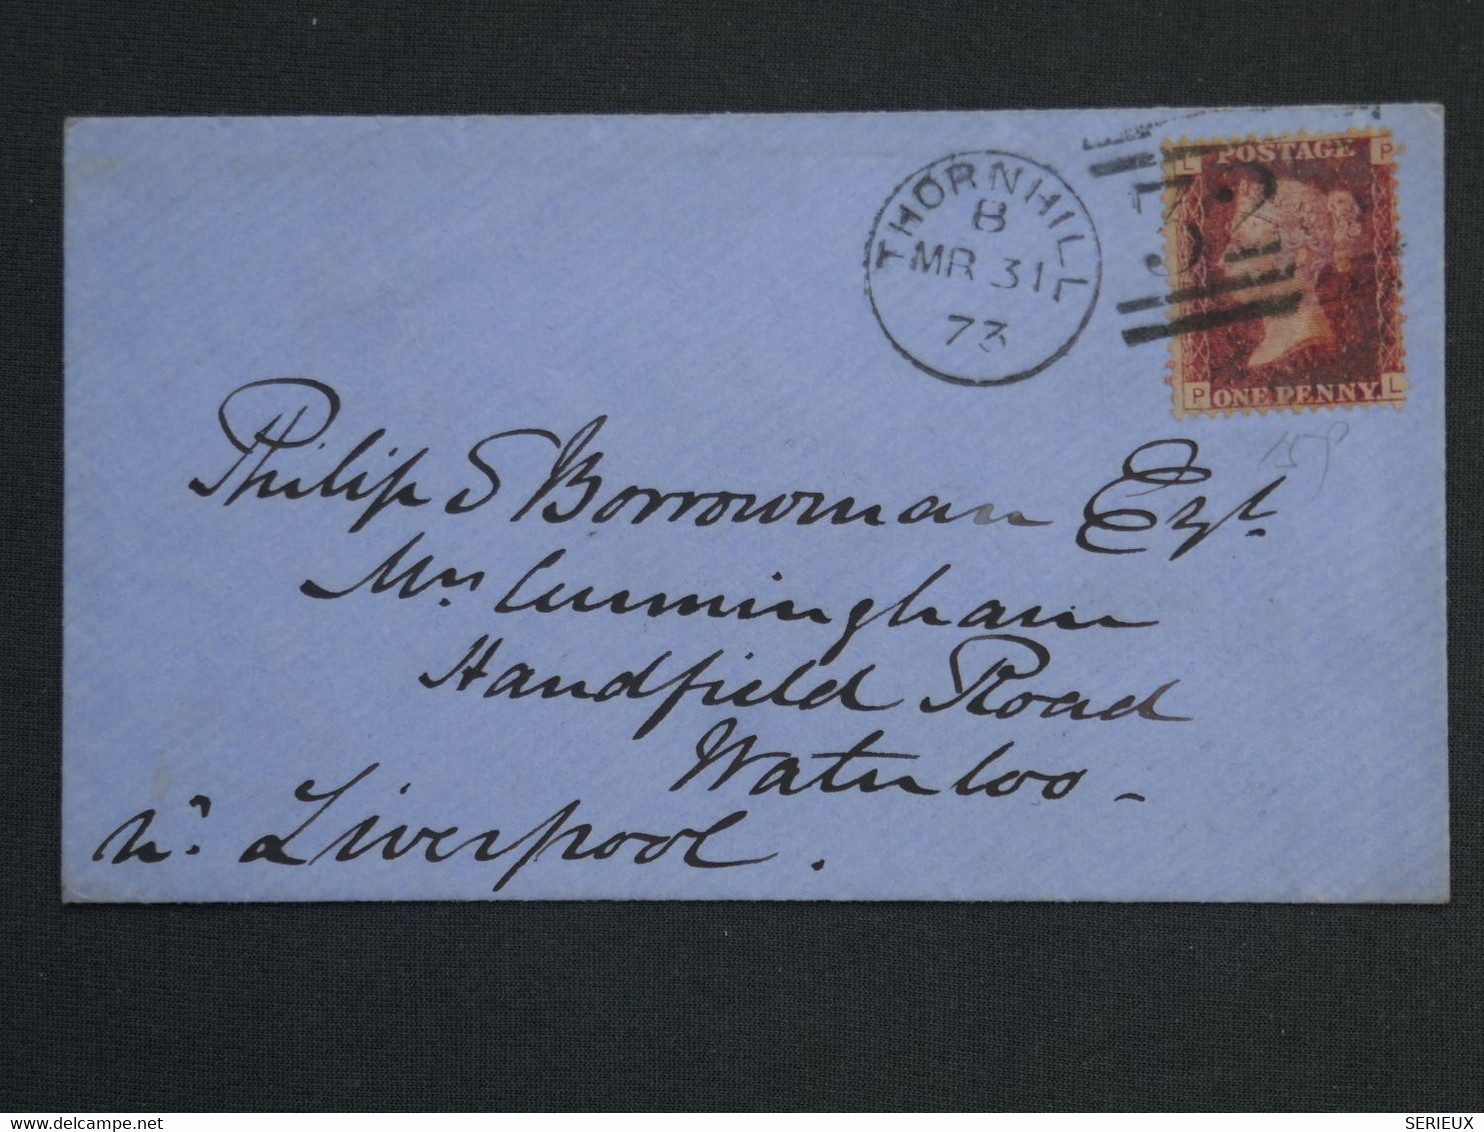 THORNHILL
B
MR 31
73
32
L POSTAGE P
P ONE PENNY. L
Philip S Borrowman Esqr.
Mrs Cunningham
Handfield Road
Waterloo -
nr. Liverpool.
delcampe.net
SERIEUX